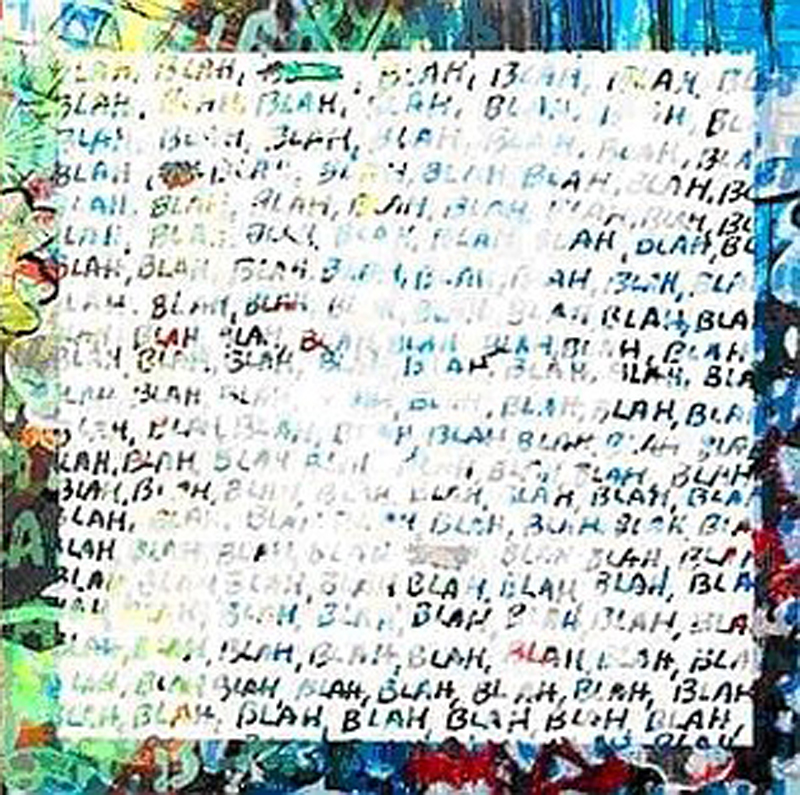 BLAH, BLAH, BLAH, BLAH, BLAH, BL
BLAH, BLAH, BLAH, BLAH, BLAH, BL
BLAH, BLAH, BLAH, BLAH, BLAH, BLAH, BLA
BLAH, BLAH, BLAH, BLAH, BLAH, BLAH, BL
BLAH, BLAH, BLAH, BLAH, BLAH, BLAH, BLAH, BL
LAH, BLAH, BLAH, BLAH, BLAH, BLAH, BL
BLAH, BLAH, BLAH, BLAH, BLAH, BLAH, BLAH, BLA
LAH, BLAH, BLAH, BLAH, BLAH, BLAH, BLA
BLAH, BLAH, BLAH, BLAH, BLAH, BLAH, BLAH
BLAH, BLAH, BLAH, BLAH, BLAH, BLAH, BLAH, BLA
LAH, BLAH, BLAH, BLAH, BLAH, BLAH, BLA
BLAH, BLAH, BLAH, BLAH, BLAH, BLAH
LAH, BLAH, BLAH, BLAH, BLAH, BLAH, BLAH, BLAH
BLAH, BLAH, BLAH, BLAH, BLAH, BLAH, BLAH, BLAH
BLAH, BLAH, BLAH, BLAH, BLAH, BLAH, BLA
LAH, BLAH, BLAH, BLAH, BLAH, BLAH, BLA
BLAH, BLAH, BLAH, BLAH, BLAH, BLAH, BLAH, BLA
BLAH, BLAH, BLAH, BLAH, BLAH, BLAH, BLA
BLAH, BLAH, BLAH, BLAH, BLAH, BLAH, BLAH, BLA
LAH, BLAH, BLAH, BLAH, BLAH, BLAH, BLAH, BLAH
BLAH, BLAH, BLAH, BLAH, BLAH, BLAH, BLAH,